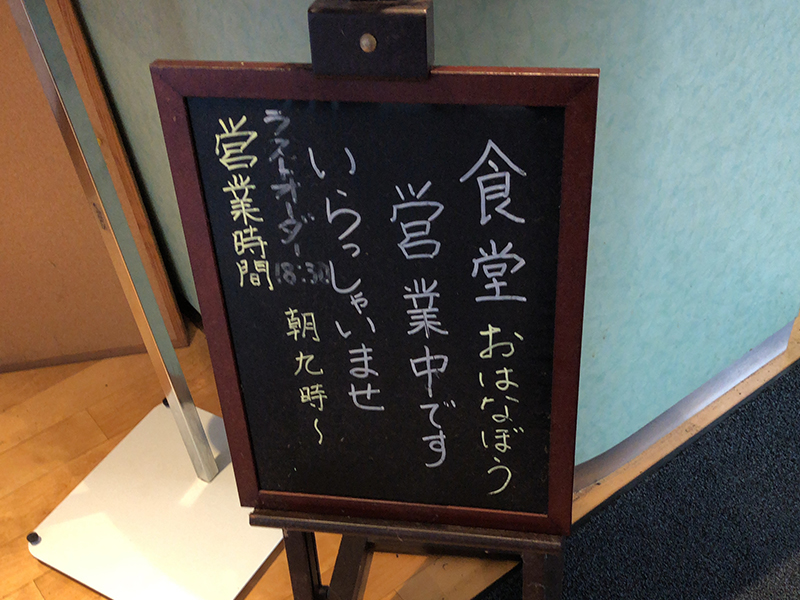 食堂 おはなぼう
営業中です
いらっしゃいませ
朝九時～
ラストオーダー 18:30
営業時間